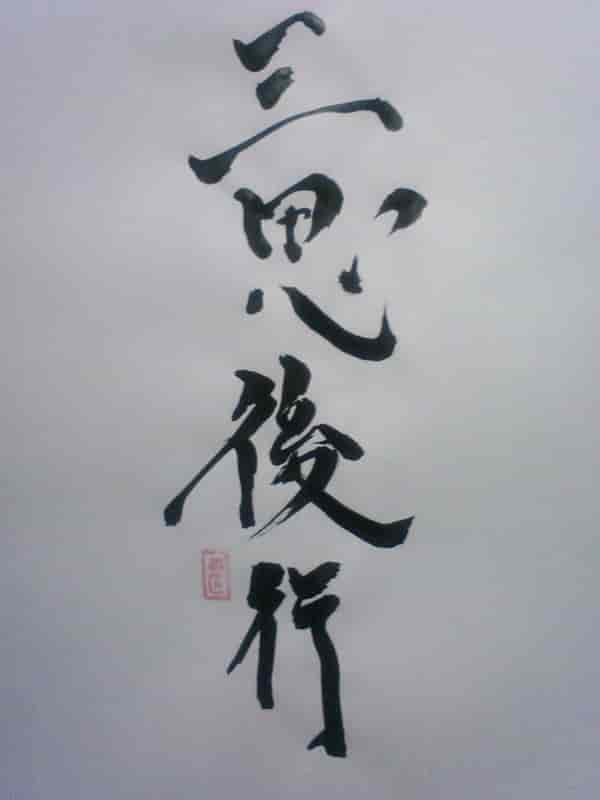 三思後行